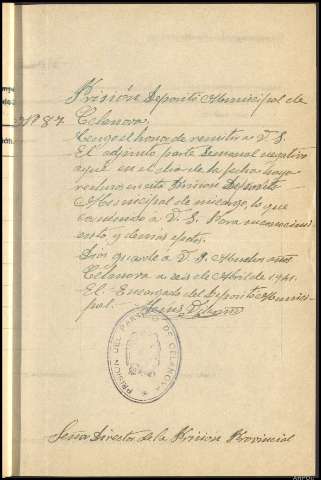 Nº 87
Prisión Deposito Municipal de
Celanova.
Tengo el honor de remitir a V. S.
El adjunto parte Semanal negativo
aqué en el dia de la fecha haya
recluso en esta Prision Deposito
Municipal de mi cargo, lo que
comunico á V. S. Para su conocimi
ento y demas efectos.
Dios guarde á V. S. Muchos años
Celanova a de Abril de 1941.
El Encargado del Deposito Munici-
pal.
PRISION DEL PARTIDO DE CELANOVA
Señor Director de la Prision Provincial